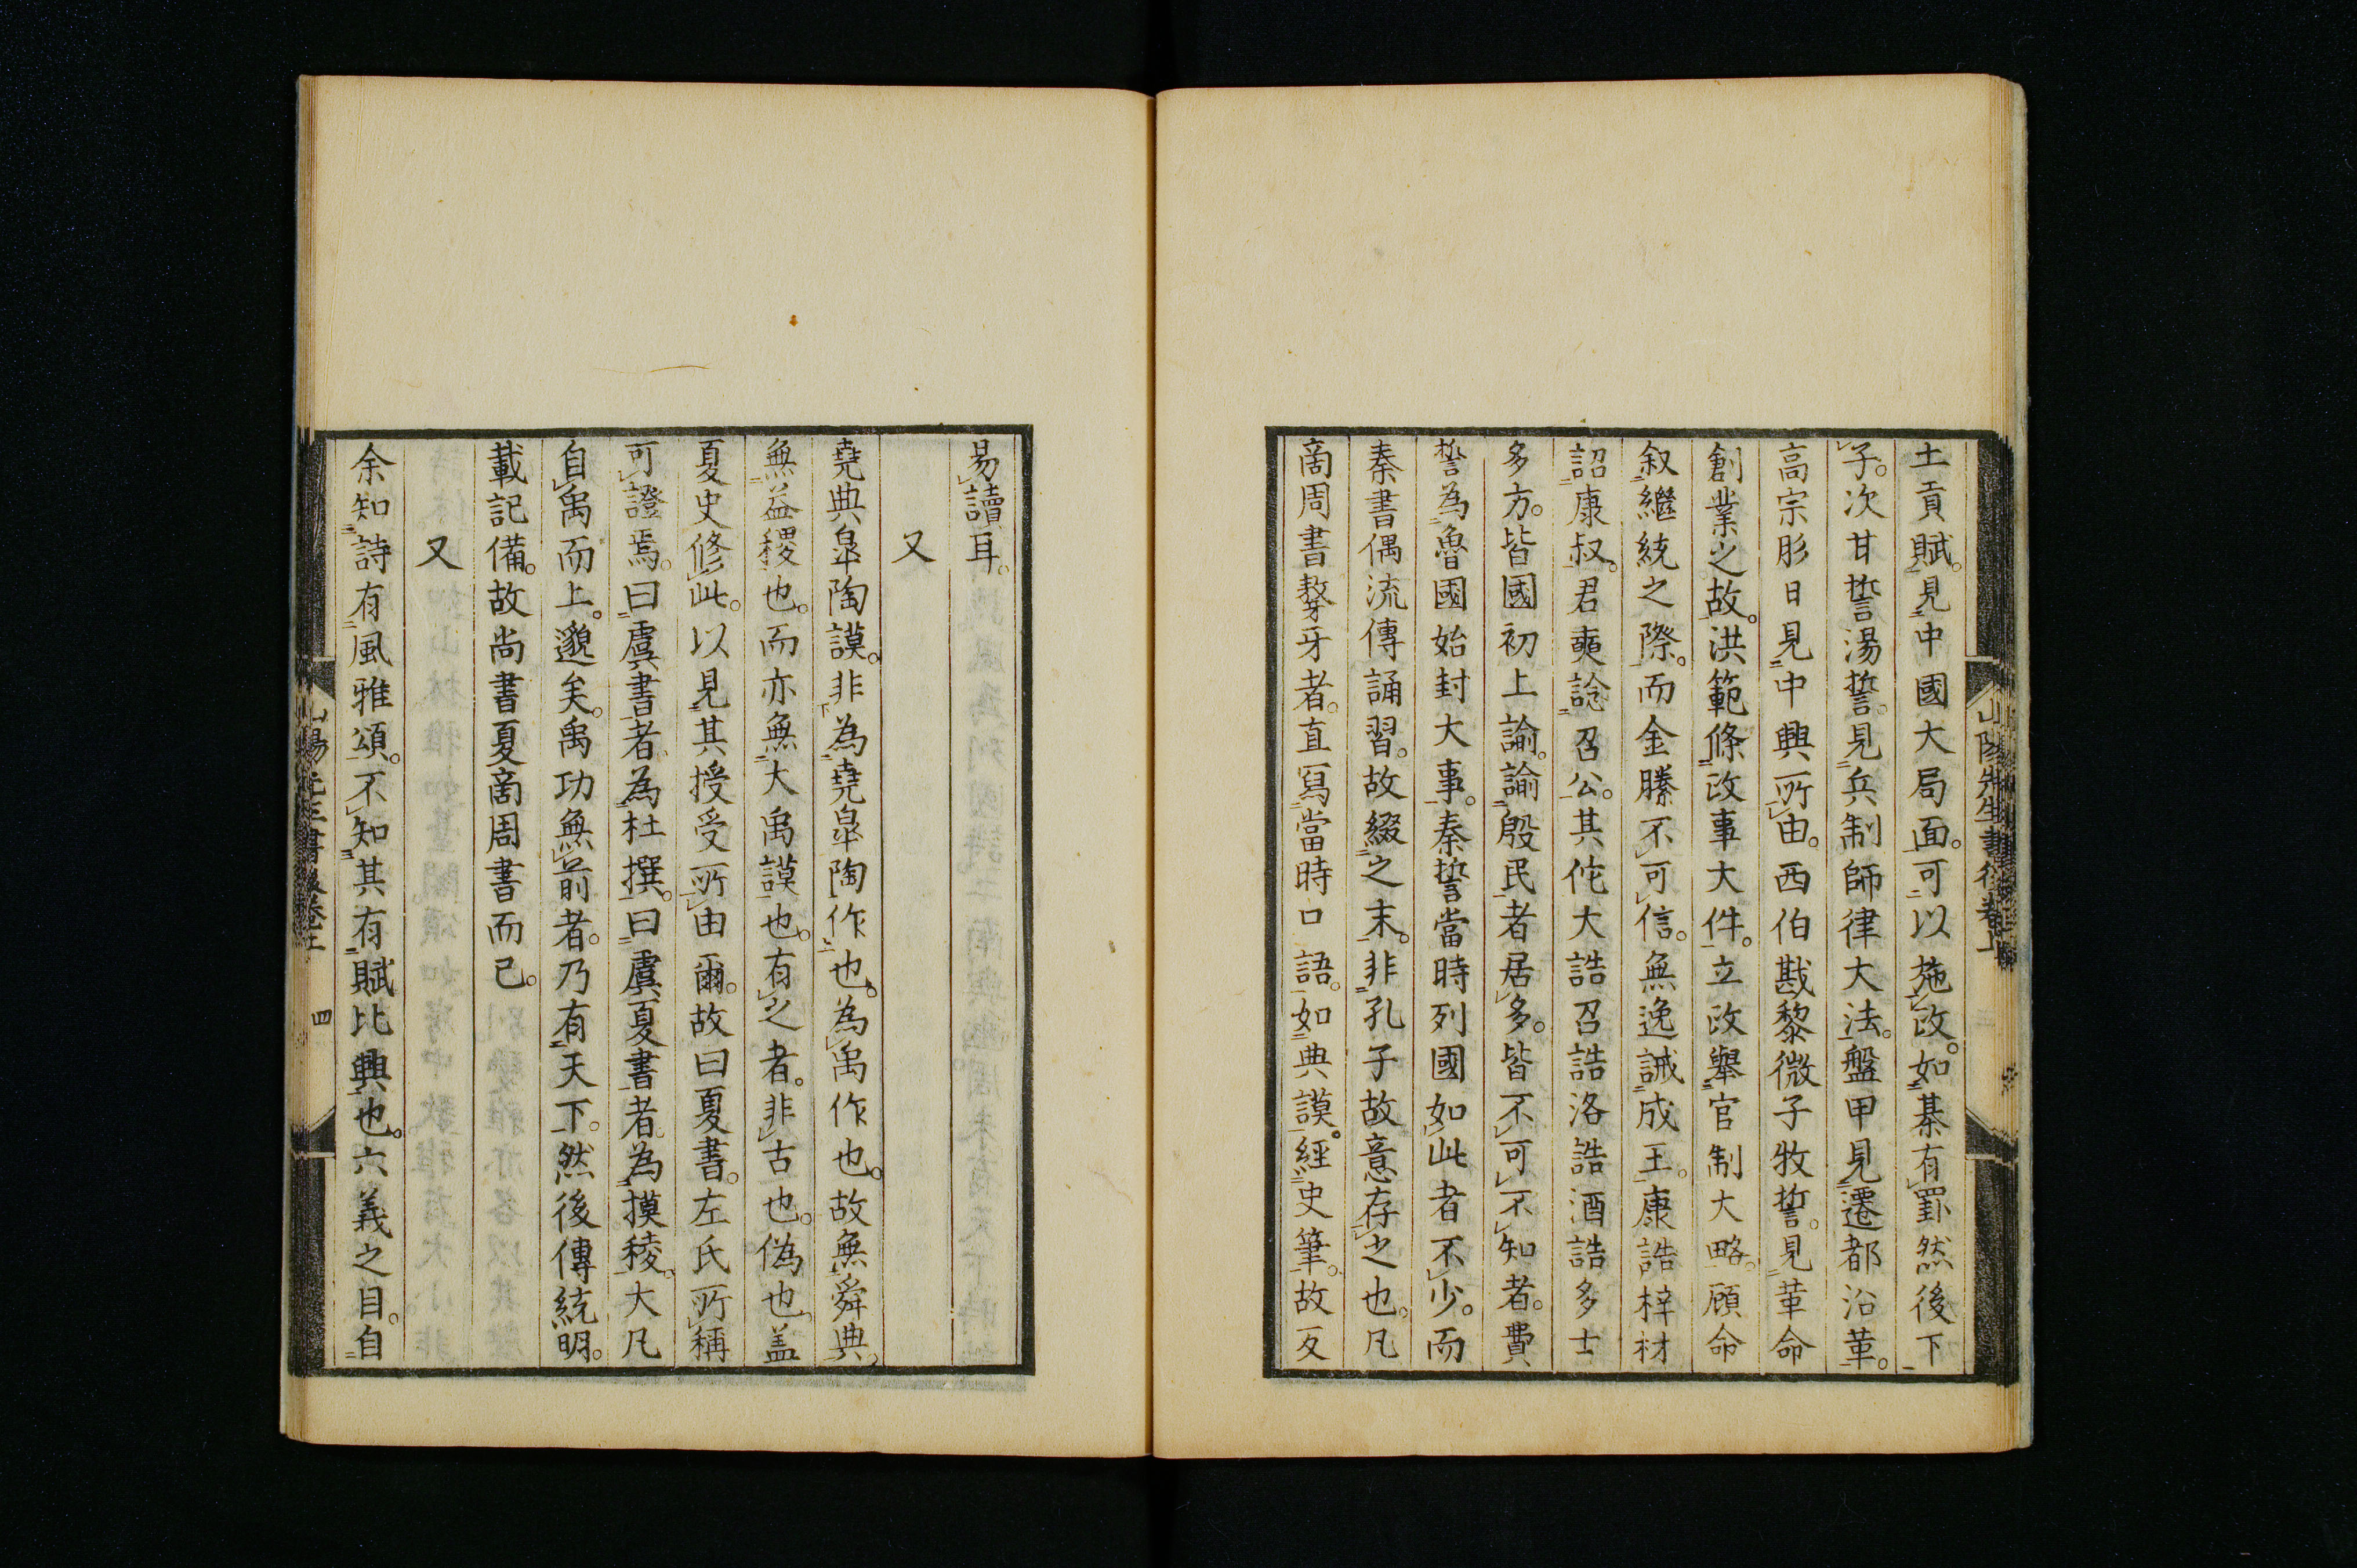 土貢賦。見中國大局面。可以施政。如棊有罫然後下
子。次甘誓湯誓。見兵制師律大法。盤甲見遷都沿革。
高宗肜日見中興所由。西伯戡黎微子牧誓。見革命
創業之故。洪範條政事大件。立政擧官制大略。顧命
叙繼統之際。而金縢不可信。無逸誡成王。康誥梓材
詔康叔。君奭諗召公。其佗大誥召誥洛誥酒誥多士
多方。皆國初上諭。諭殷民者居多。皆不可不知者。費
誓為魯國始封大事。秦誓當時列國如此者不少。而
秦書偶流傳誦習。故綴之末。非孔子故意存之也。凡
商周書聱牙者。直寫當時口語。如典謨。經史筆。故反
易讀耳。
又
堯典皐陶謨。非為堯皐陶作也。為禹作也。故無舜典。
無益稷也。而亦無大禹謨也。有之者。非古也。偽也。盖
夏史修此。以見其授受所由爾。故曰夏書。左氏所稱
可證焉。曰虞書者。為杜撰。曰虞夏書者。為摸稜。大凡
自禹而上。邈矣。禹功無前者。乃有天下。然後傳統明。
載記備。故尚書夏商周書而已。
又
余知詩有風雅頌。不知其有賦比興也。六義之目。自
山陽先生書後卷上
山陽先生書後卷上 四